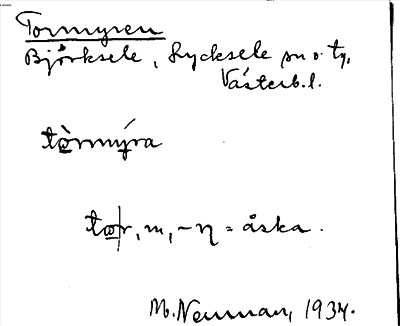 Tormyren
Björksele, Lycksele sn o. tg,
Västerb.l.
tòrmýra
tor, m, -η = åska.
M. Neuman, 1934.